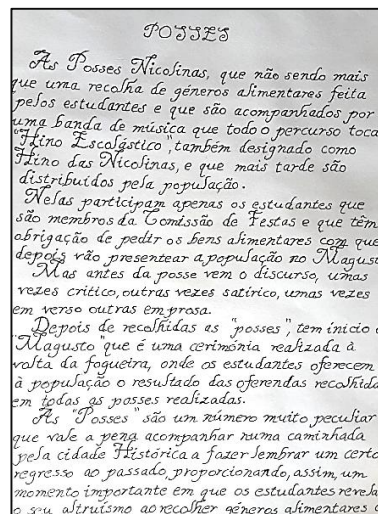 POSSES
As Posses Nicolinas, que não sendo mais
que uma recolha de géneros alimentares feita
pelos estudantes e que são acompanhados por
uma banda de música que todo o percurso toca
"Hino Escolástico", também designado como
Hino das Nicolinas, e que mais tarde são
distribuidos pela população.
Nelas participam apenas os estudantes que
são membros da Comissão de Festas e que têm
obrigação de pedir os bens alimentares com que
depois vão presentear a população no Magusto
Mas antes da posse vem o discurso, umas
vezes critico, outras vezes satírico, umas vezes
em verso outras em prosa.
Depois de recolhidas as "posses", tem inicio o
"Magusto" que é uma cerimónia realizada à
volta da fogueira, onde os estudantes oferecem
à população o resultado das oferendas recolhida
em todas as posses realizadas.
As "Posses" são um número muito peculiar
que vale a pena acompanhar numa caminhada
pela cidade Histórica a fazer lembrar um certo
regresso ao passado, proporcionando, assim, um
momento importante em que os estudantes revela
o seu altruísmo ao recolher géneros alimentares